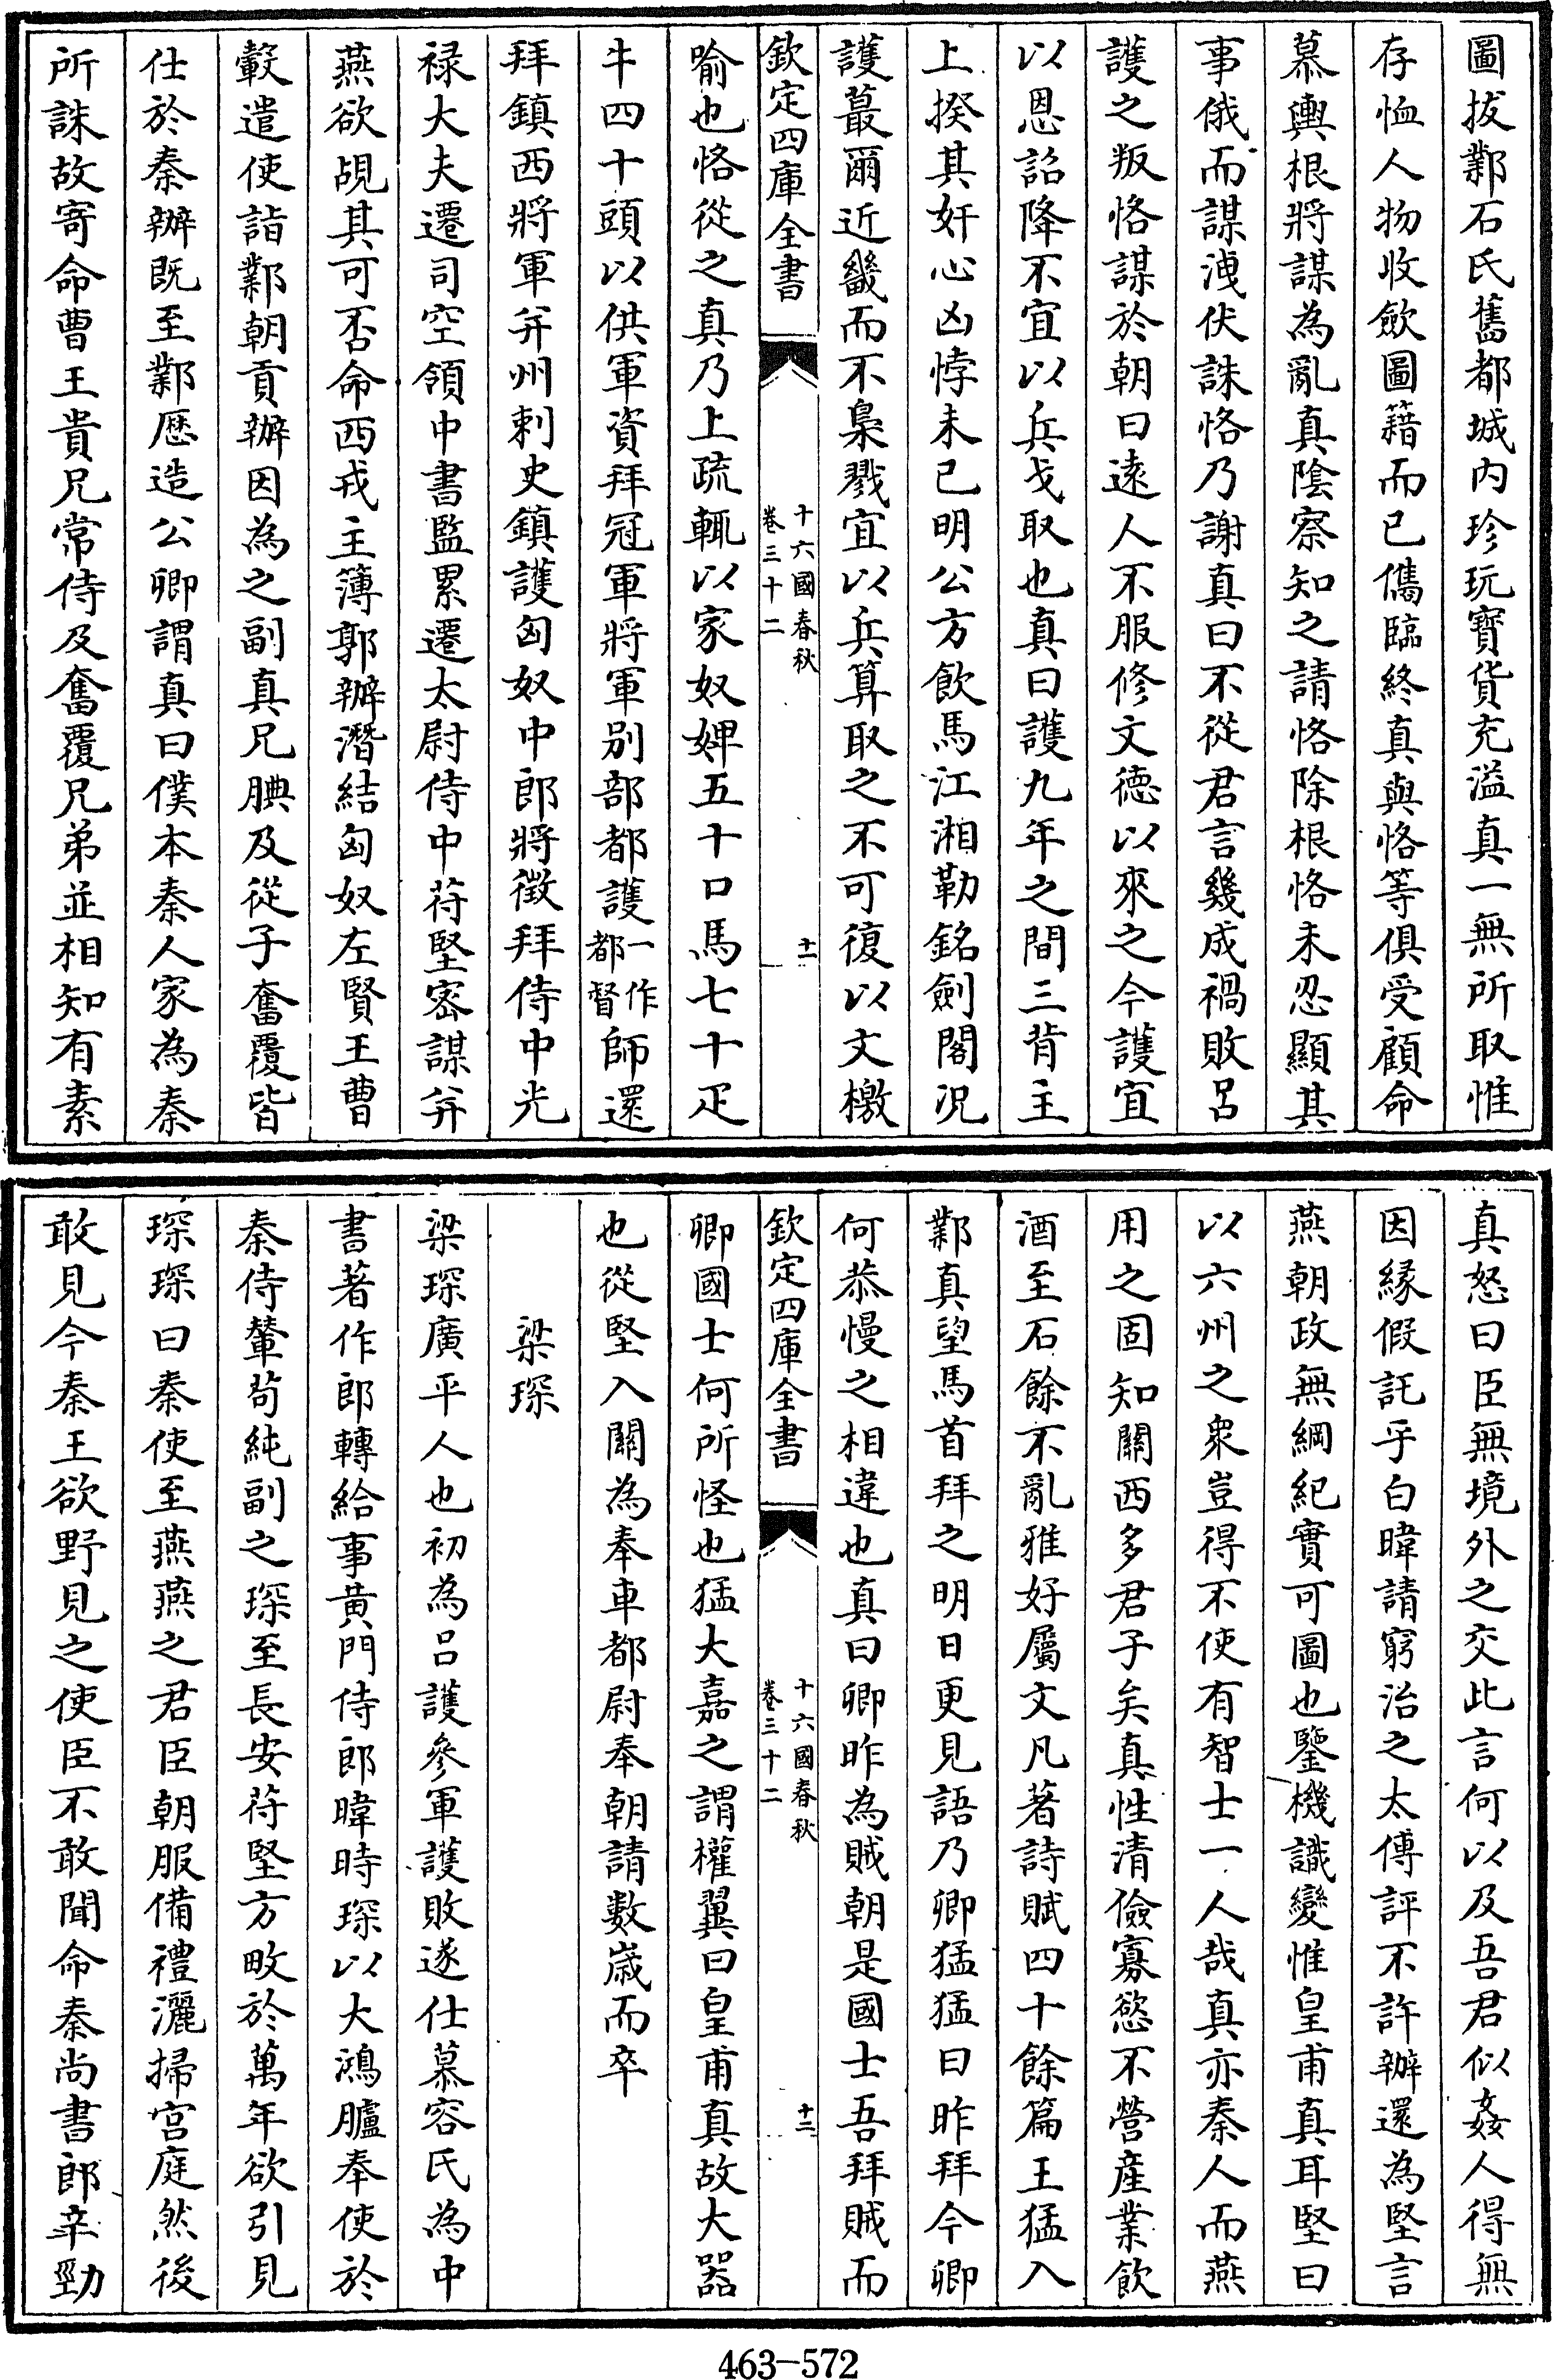 圖拔鄴石氏舊都城内珍玩寶貨充溢真一無所取惟
存恤人物收歛圖籍而已儁臨終真與恪等俱受顧命
慕輿根將謀為亂真陰察知之請恪除根恪未忍顯其
事俄而謀洩伏誅恪乃謝真曰不從君言幾成禍敗呂
護之叛恪謀於朝曰遠人不服修文德以來之今護宜
以恩詔降不宜以兵戈取也真曰護九年之間三背主
上揆其奸心凶悖未已明公方飲馬江湘勒銘劍閣况
護蕞爾近畿而不梟戮宜以兵算取之不可復以文檄
欽定四庫全書
十六國春秋
卷三十二
十一
喻也恪從之真乃上疏輒以家奴婢五十口馬七十疋
牛四十頭以供軍資拜冠軍將軍别部都護一作都督師還
拜鎮西將軍并州刺史鎮護匈奴中郎將徴拜侍中光
禄大夫遷司空領中書監累遷太尉侍中苻堅宻謀并
燕欲覘其可否命西戎主簿郭辦潛結匈奴左賢王曹
轂遣使詣鄴朝貢辦因為之副真兄腆及從子奮覆皆
仕於秦辦既至鄴厯造公卿謂真曰僕本秦人家為秦
所誅故寄命曹王貴兄常侍及奮覆兄弟並相知有素
真怒曰臣無境外之交此言何以及吾君似姦人得無
因緣假託乎白暐請窮治之太傅評不許辦還為堅言
燕朝政無綱紀實可圖也鑒機識變惟皇甫真耳堅曰
以六州之衆豈得不使有智士一人哉真亦秦人而燕
用之固知關西多君子矣真性清儉寡慾不營産業飲
酒至石餘不亂雅好屬文凡著詩賦四十餘篇王猛入
鄴真望馬首拜之明日更見語乃卿猛猛曰昨拜今卿
何恭慢之相違也真曰卿昨為賊朝是國士吾拜賊而
欽定四庫全書
十六國春秋
卷三十二
十二
卿國士何所怪也猛大嘉之謂權翼曰皇甫真故大器
也從堅入關為奉車都尉奉朝請數嵗而卒
梁琛
梁琛廣平人也初為吕護參軍護敗遂仕慕容氏為中
書著作郎轉給事黄門侍郎暐時琛以大鴻臚奉使於
秦侍輦苟純副之琛至長安苻堅方畋於萬年欲引見
琛琛曰秦使至燕燕之君臣朝服備禮灑掃宫庭然後
敢見今秦王欲野見之使臣不敢聞命秦尚書郎辛勁
463-572